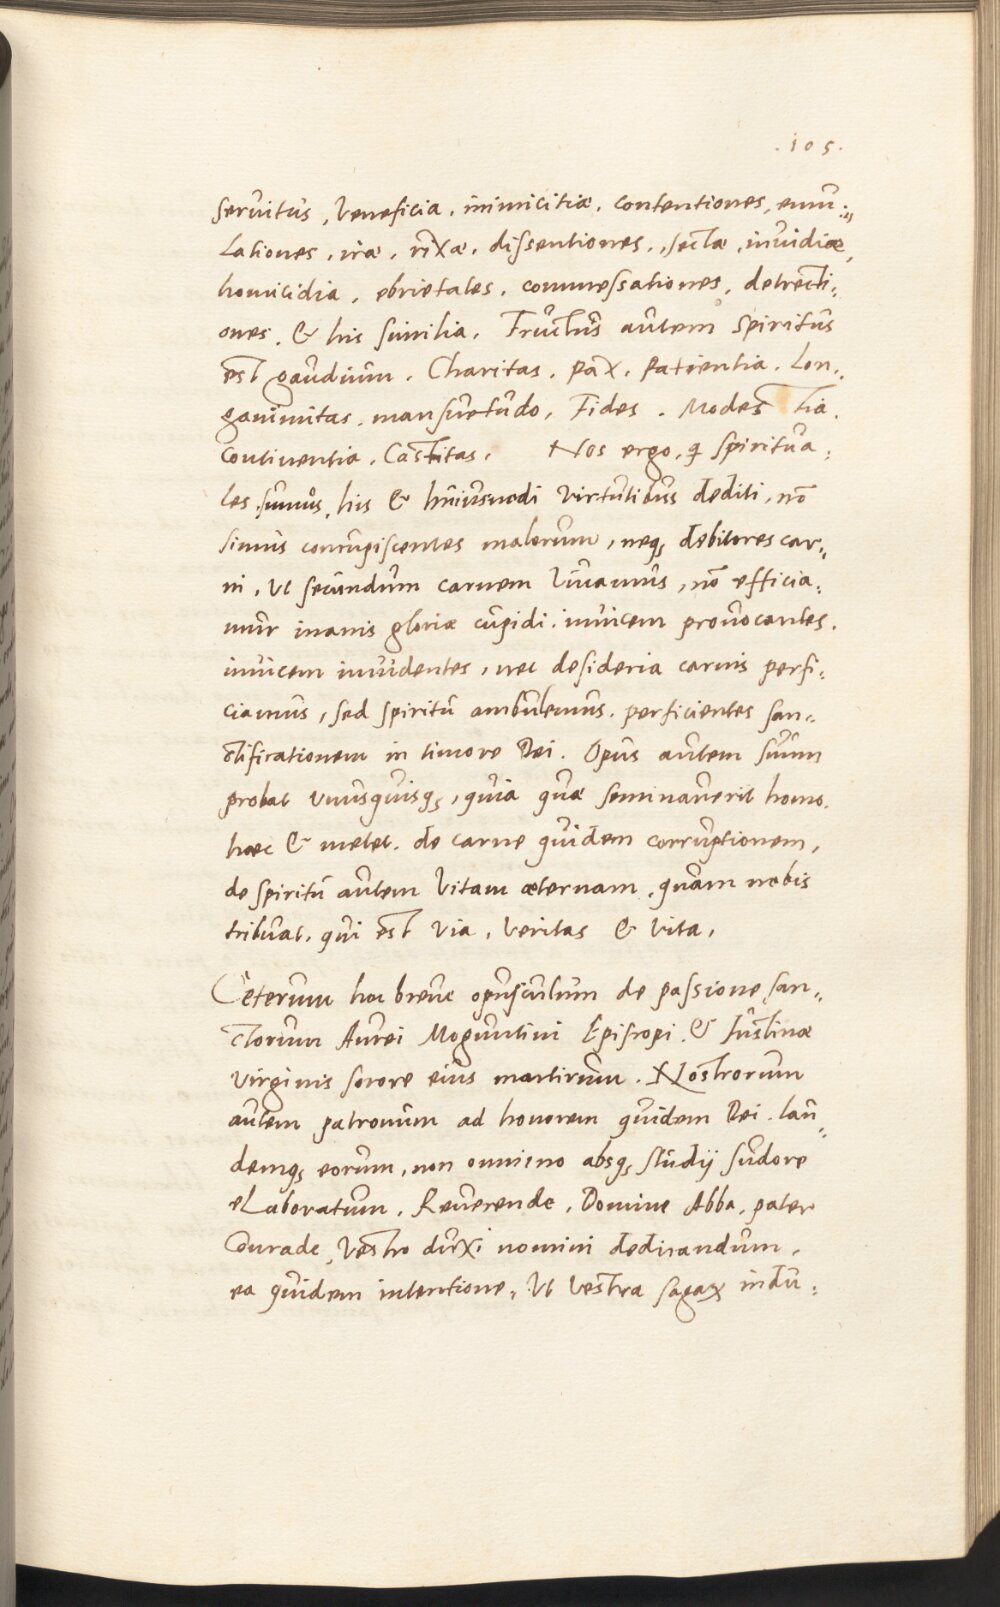 .105.
servitus, Veneficia. inimicitiæ. contentiones, emu:
lationes, iræ, rixæ. dissentiones, sectæ, invidiæ,
homicidia, ebrietates. commessationes, detrecti:
ones. & his similia. Fructus autem Spiritus
est gaudium. Charitas. pax. patientia. Lon:
ganimitas. mansuetudo, Fides. Modestia.
Continentia, Castitas. Nos ergo, q̃ spiritua:
les sumus, his & huiusmodi virtutibus dediti, nõ
simus concupiscentes malorum, neq; debitores car:
ni, ut secundum carnem vivamus, nõ efficia:
mur inanis gloriæ cupidi. invicem provocantes.
invicem invidentes, nec desideria carnis perfi:
ciamus, sed spiritu ambulemus. perficientes san:
ctificationem in timore Dei. Opus autem suum
probat unusquisq;, quia quæ seminaverit homo.
hæc & metet. de carne quidem corruptionem,
de spiritu autem Vitam æternam, quam nobis
tribuat, qui est via, veritas & vita,
Ceterum hoc breue opusculum de passione san:
ctorum Aurei Moguntini Episcopi. & Iustinæ
virginis sorore eius martirum. Nostrorum
autem patronum ad honorem quidem Dei. lau:
demq; eorum, non omnino absq; studij sudore
eLaboratum, Reuerende, Domine Abba, pater
Conrade, Vestro duxi nomini dedicandum,
ea quidem intentione, ut vestra sagax indu: